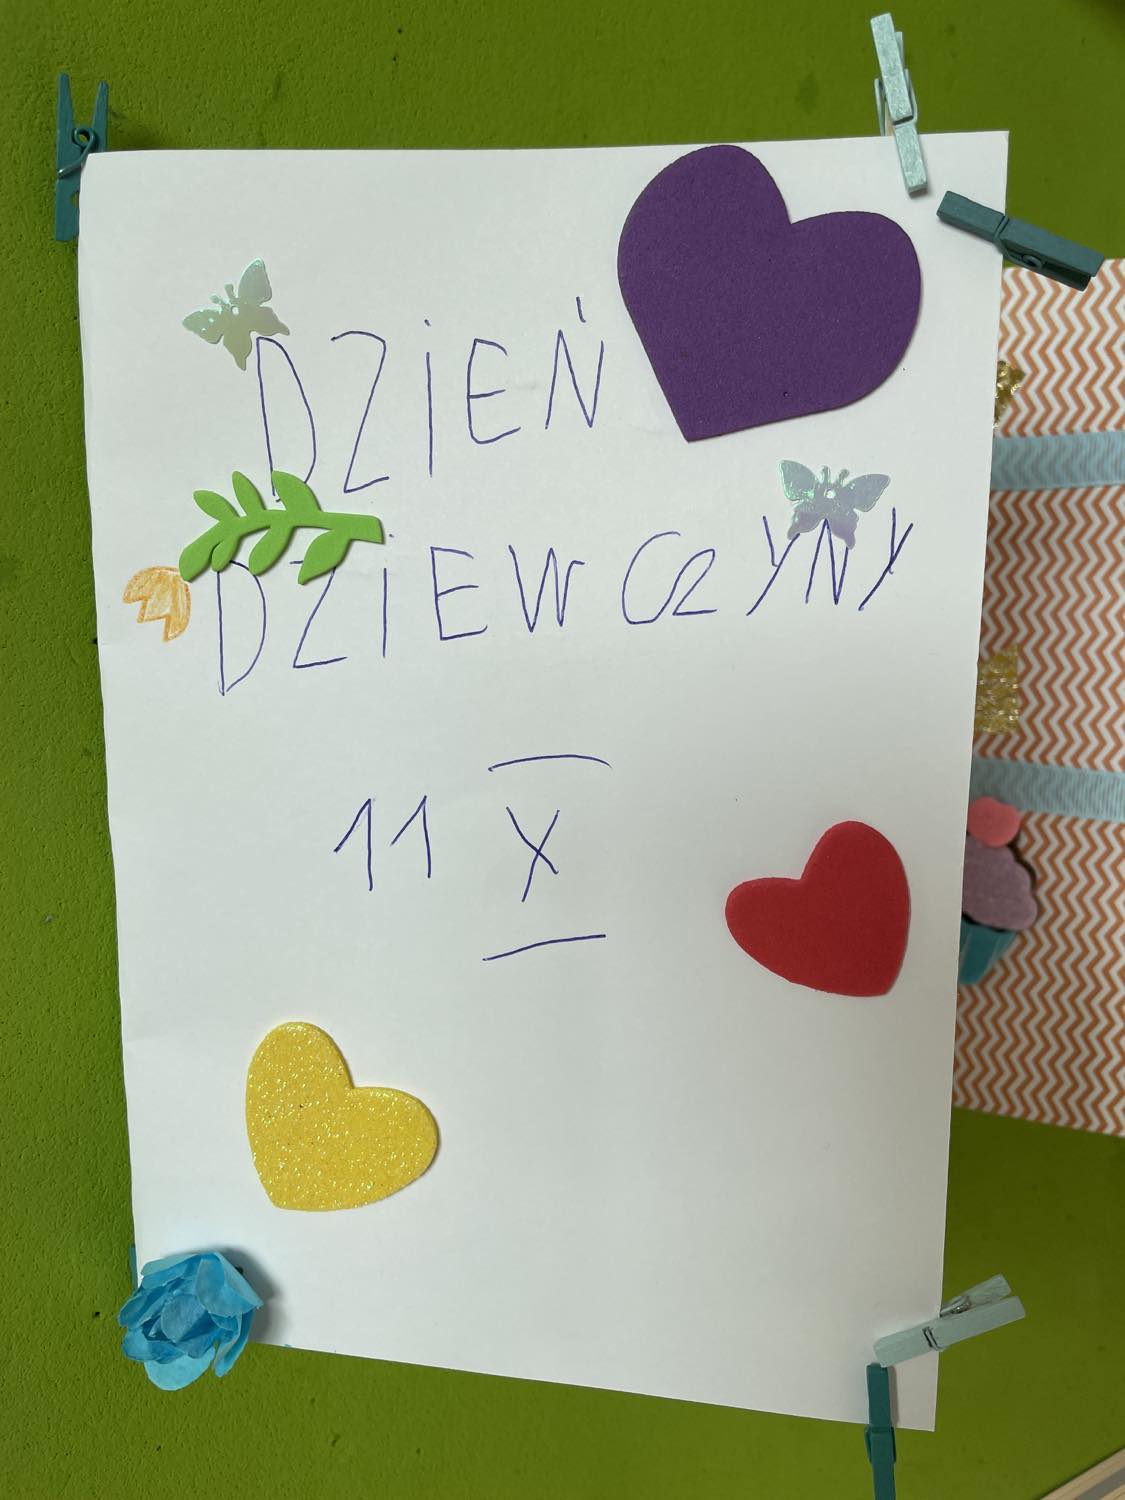 DZIEŃ
DZIEWCZYNY
11 X